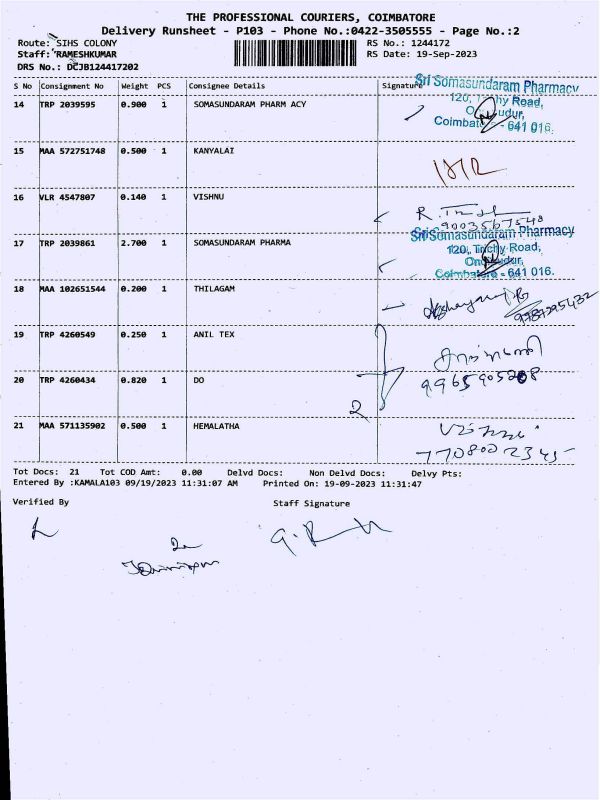 THE PROFESSIONAL COURIERS, COIMBATORE
Delivery Runsheet - P103 - Phone No.:0422-3505555 - Page No.:2
Route: SIHS COLONY RS No.: 1244172
Staff: RAMESHKUMAR RS Date: 19-Sep-2023
DRS No.: DCJB124417202
S No Consignment No Weight PCS Consignee Details Signature
Sri Somasundaram Pharmacy
14 TRP 2039595 0.900 1 SOMASUNDARAM PHARM ACY
120, Road,
Coimbatore - 641 016.
15 MAA 572751748 0.500 1 KANYALAI
16 VLR 4547807 0.140 1 VISHNU
9003567548
Sri Somasundaram Pharmacy
17 TRP 2039861 2.700 1 SOMASUNDARAM PHARMA
120, Trichy Road,
Coimbatore - 641 016.
18 MAA 102651544 0.200 1 THILAGAM
19 TRP 4260549 0.250 1 ANIL TEX
20 TRP 4260434 0.820 1 DO
2
21 MAA 571135902 0.500 1 HEMALATHA
7708002345
Tot Docs: 21 Tot COD Amt: 0.00 Delvd Docs: Non Delvd Docs: Delvy Pts:
Entered By :KAMALA103 09/19/2023 11:31:07 AM Printed On: 19-09-2023 11:31:47
Verified By Staff Signature